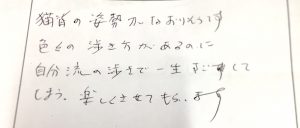 猫背の姿勢がなおりそうです
色々の歩き方があるのに
自分流の歩きで一生すごして
しまう。楽しくさせてもらいます